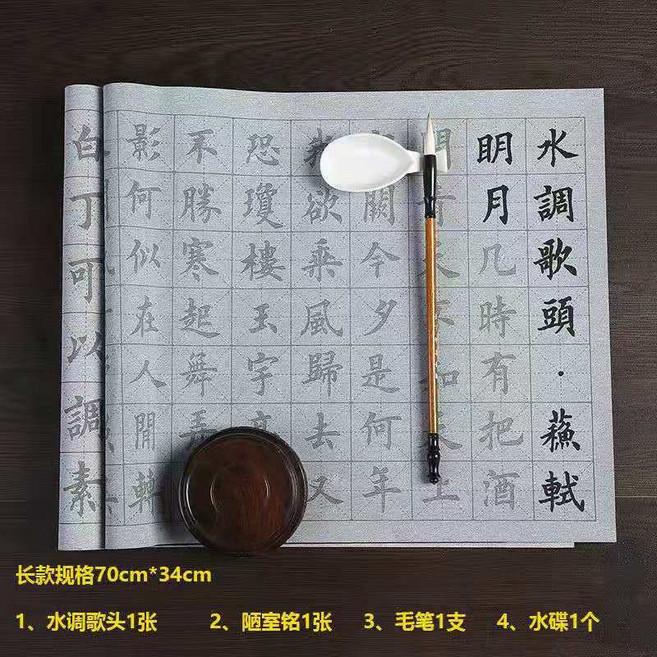 水調歌頭·蘇軾
眀月几時有把酒
青天不知天上
闕今夕是何年
我欲乘風歸去又
恐瓊樓玉宇高
不勝寒起舞弄
影何似在人間轉
白丁可以調素
长款规格70cm*34cm
1、水调歌头1张 2、陋室铭1张 3、毛笔1支 4、水碟1个